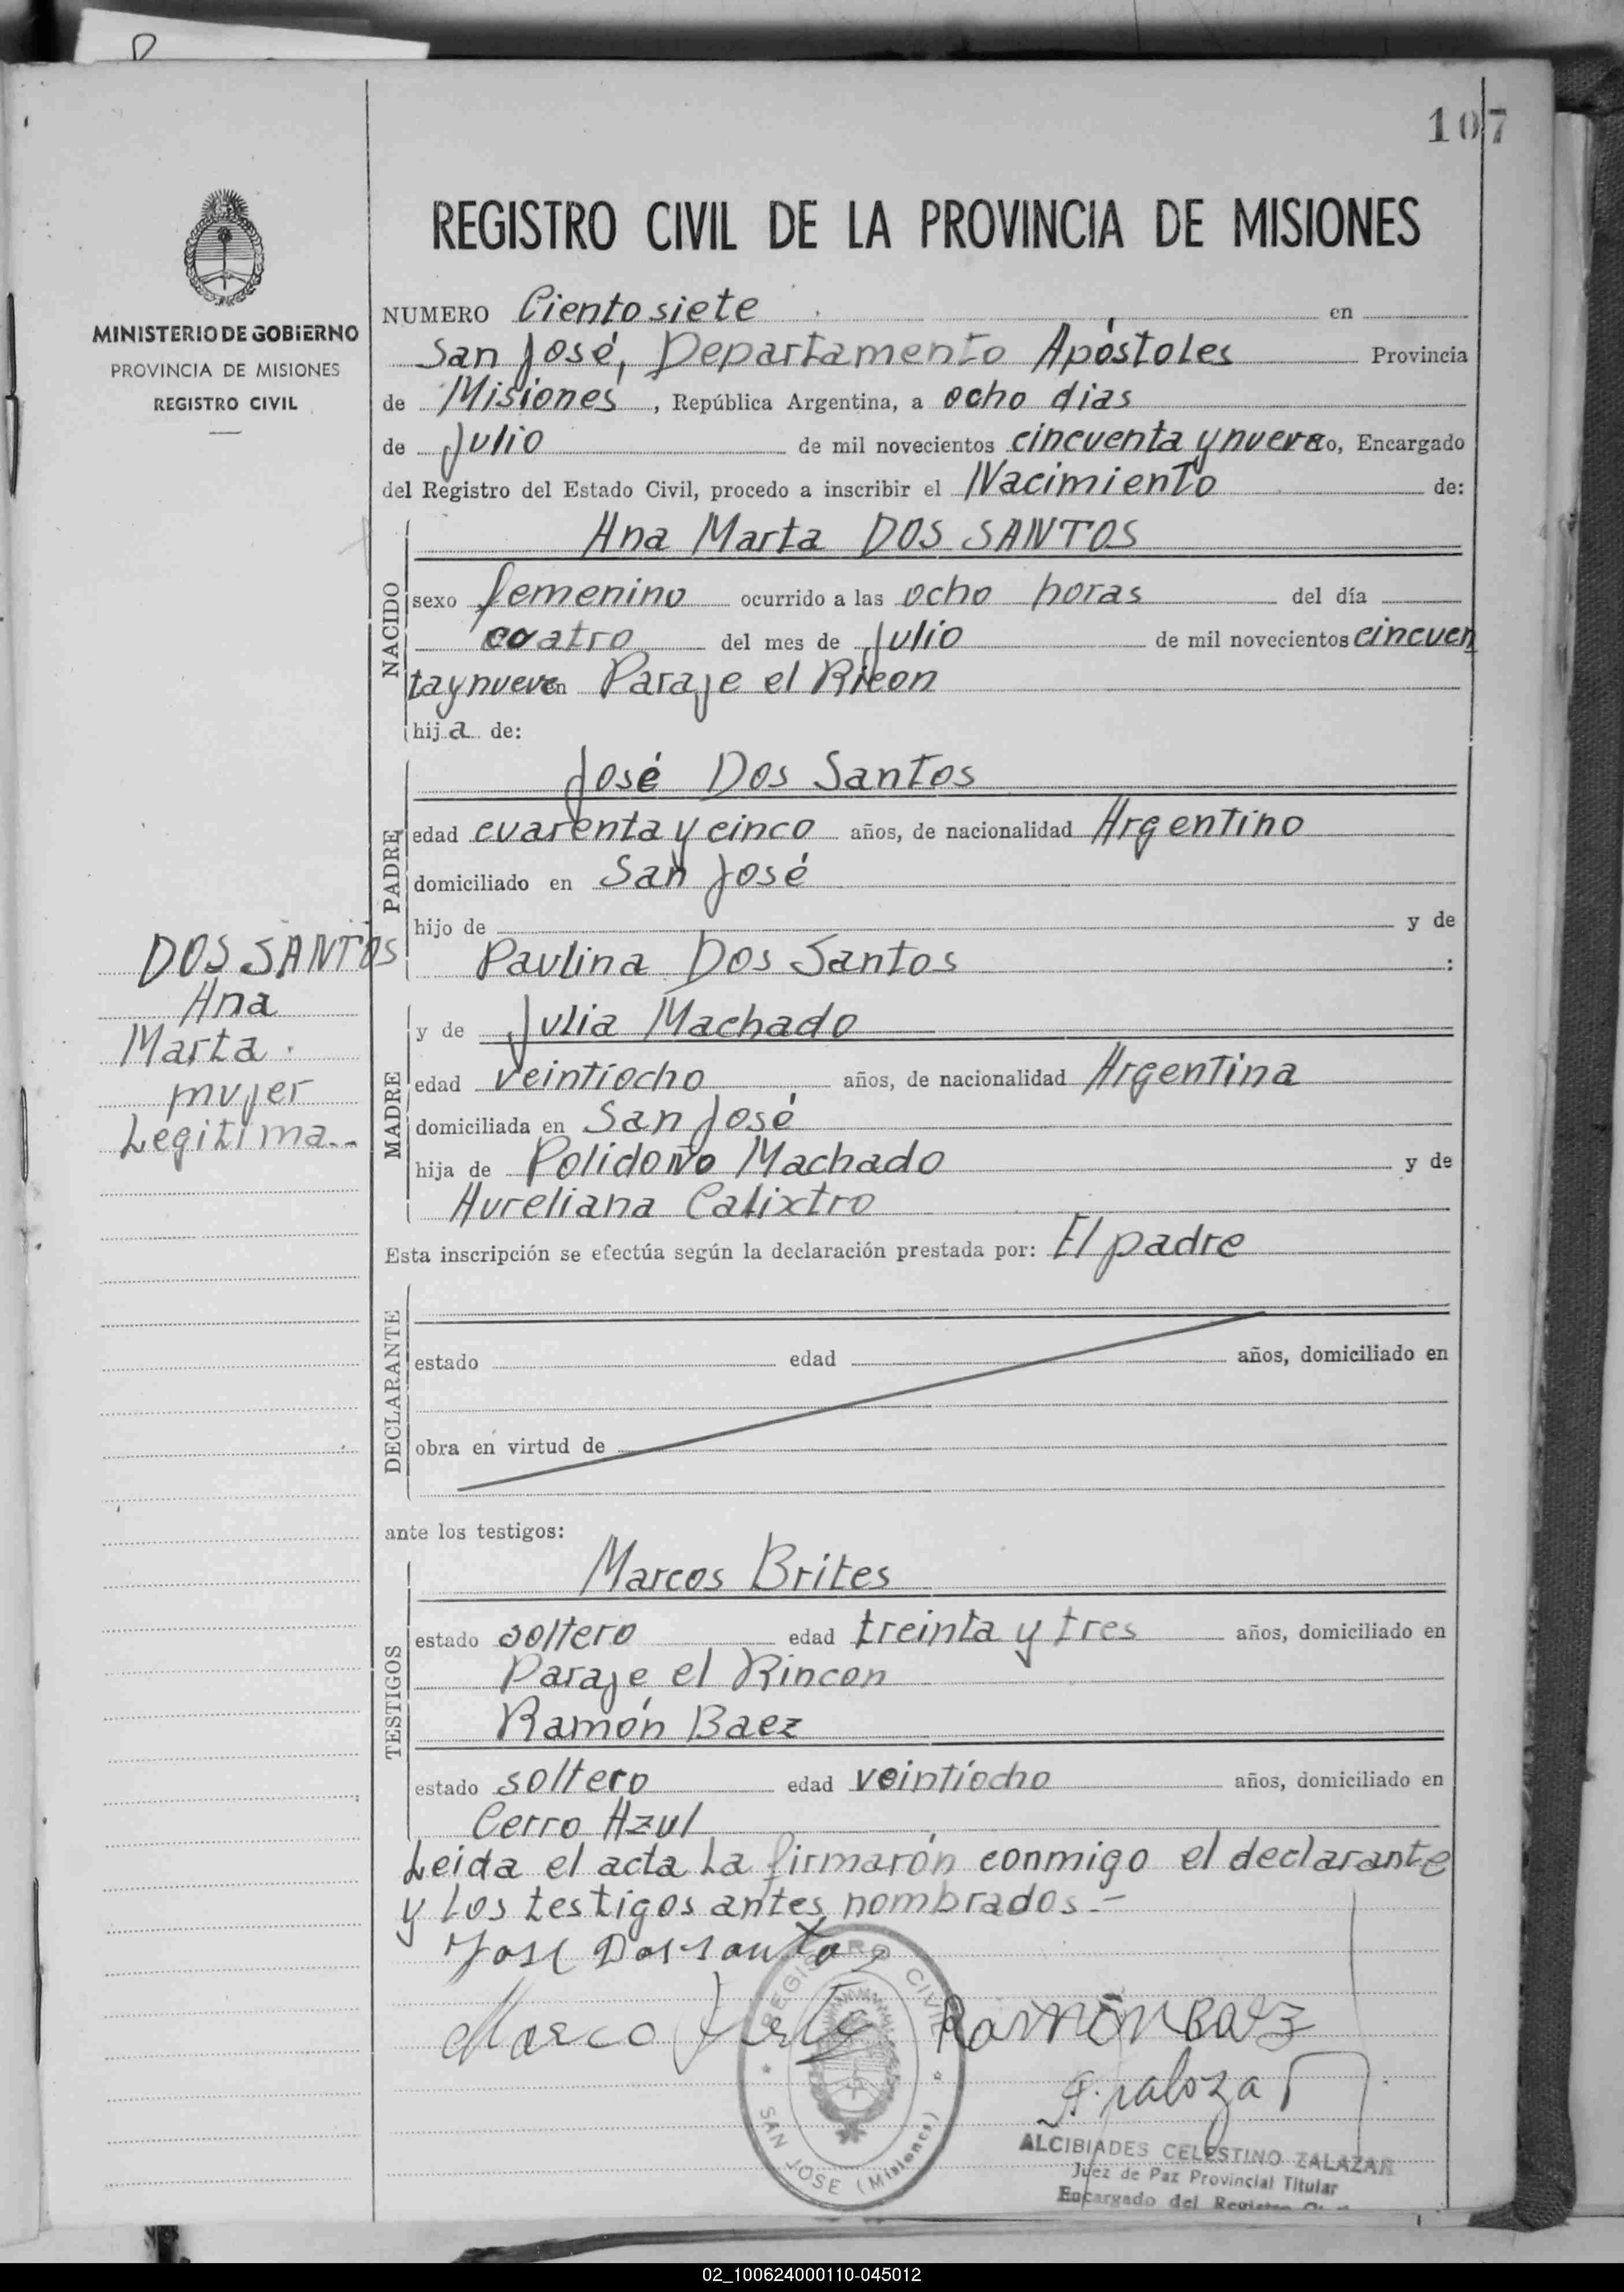 107
REGISTRO CIVIL DE LA PROVINCIA DE MISIONES
MINISTERIO DE GOBIERNO
PROVINCIA DE MISIONES
REGISTRO CIVIL
NUMERO Ciento siete en
San José, Departamento Apóstoles Provincia
de Misiones, República Argentina, a ocho dias
de Julio de mil novecientos cincuenta y nueve yo, Encargado
del Registro del Estado Civil, procedo a inscribir el Nacimiento de:
NACIDO
Ana Marta DOS SANTOS
sexo femenino ocurrido a las ocho horas del día
cuatro del mes de Julio de mil novecientos cincuen
ta y nueve en Paraje el Ricon
hija de:
PADRE
José Dos Santos
edad cuarenta y cinco años, de nacionalidad Argentino
domiciliado en San José
hijo de y de
Paulina Dos Santos :
DOS SANTOS
Ana
Marta.
mujer
Legitima.-
MADRE
y de Julia Machado
edad veintiocho años, de nacionalidad Argentina
domiciliada en San José
hija de Polidoño Machado y de
Aureliana Calixtro
Esta inscripción se efectúa según la declaración prestada por: El padre
DECLARANTE
estado edad años, domiciliado en
obra en virtud de
ante los testigos:
TESTIGOS
Marcos Brites
estado soltero edad treinta y tres años, domiciliado en
Paraje el Rincon
Ramón Baez
estado soltero edad veintiocho años, domiciliado en
Cerro Azul
Leida el acta La firmarón conmigo el declarante
y Los testigos antes nombrados.-
José Dos santos
Marco
Ramón Baez
REGISTRO CIVIL
SAN JOSE (Misiones)
ALCIBIADES CELESTINO ZALAZAR
Juez de Paz Provincial Titular
Encargado del Registro
02_100624000110-045012